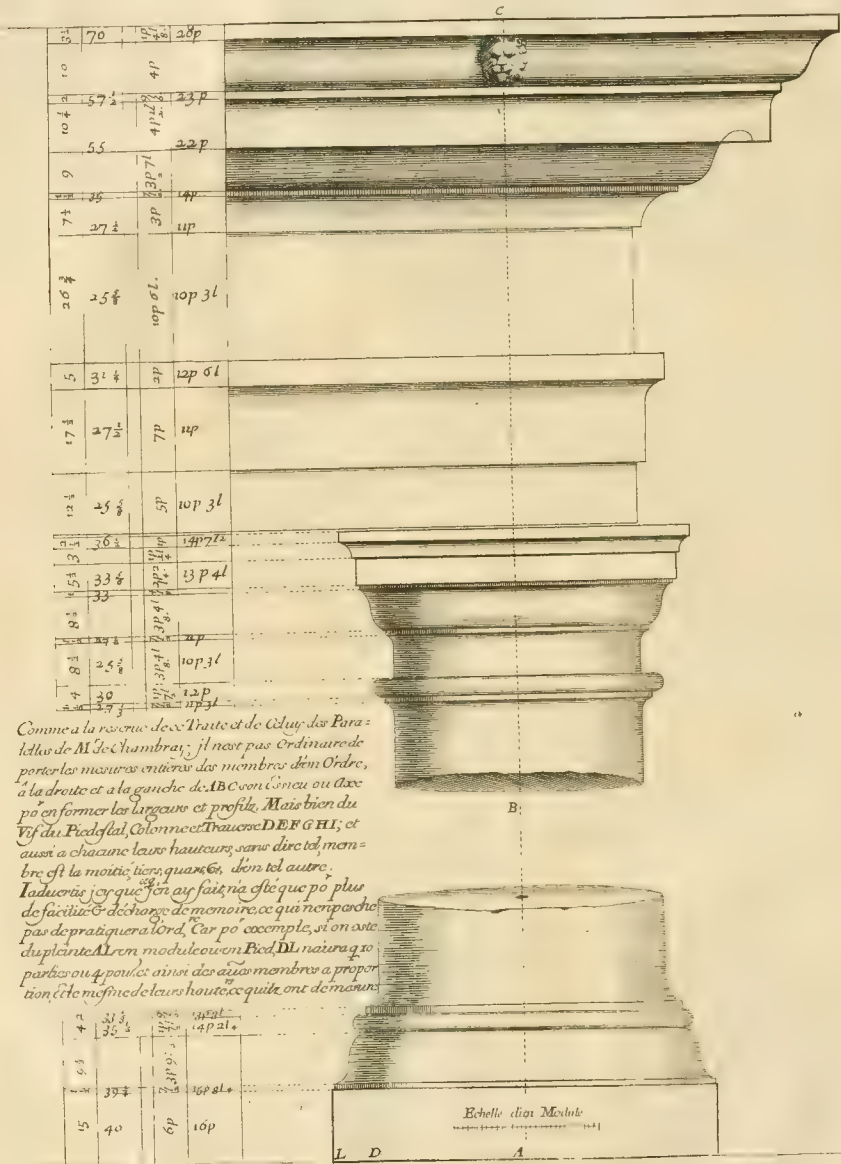 C
3 1/2 70 28p
10 4p
2 57 1/2 23p
10 1/4
55 22p
9 3p7l
35 14p
7 1/2 3p
27 1/2 11p
26 3/4 25 5/8 10p 6l. 10p 3l
5 31 1/4 2p 12p 6l
17 1/2 27 1/2 7p 11p
12 1/2 25 5/8 5p 10p 3l
36 1/2 14p7l2
3
5 1/2 33 5/8 13p 4l
33
8 1/2 3p4l
11p
8 1/2 25 5/8 3p4l 10p3l
4 30 12p
27 1/2 11p3l
Comme a la reserue de ce Traite et de Celuy des Para=
lelles de Mr de Chambray; jl nest pas Ordinaire de
porter les mesures entieres des membres d'un Ordre,
a la droite et a la gauche de ABC son Esneu ou Axe
po en former les largeurs et profilz. Mais bien du
Vif du Piedestal, Colonne et Trauerse DEFGHI; et
aussi a chacune leurs hauteurs, sans dire tel mem=
bre est la moitie, tiers, quart &c, d'un tel autre.
Iaduertis jcy que ce q j'en ay fait, n'a esté que po plus
de facilité & décharge de memoire, ce qui n'enpesche
pas de pratiquer a lOrd.re Car po exemple, si on oste
du pleinte AL un module ou un Pied, DL n'aura q 10
parties ou 4 pou. et ainsi des au.es membres a propor
tion, & le mesme de leurs haute.rs ce quilz ont de moins
B
4 2 33 1/3 13p3l
35 14p 2l
9 1/2 3p9
39 1/4 15p 8l
15 40 6p 16p
Echelle d'un Module
L D A